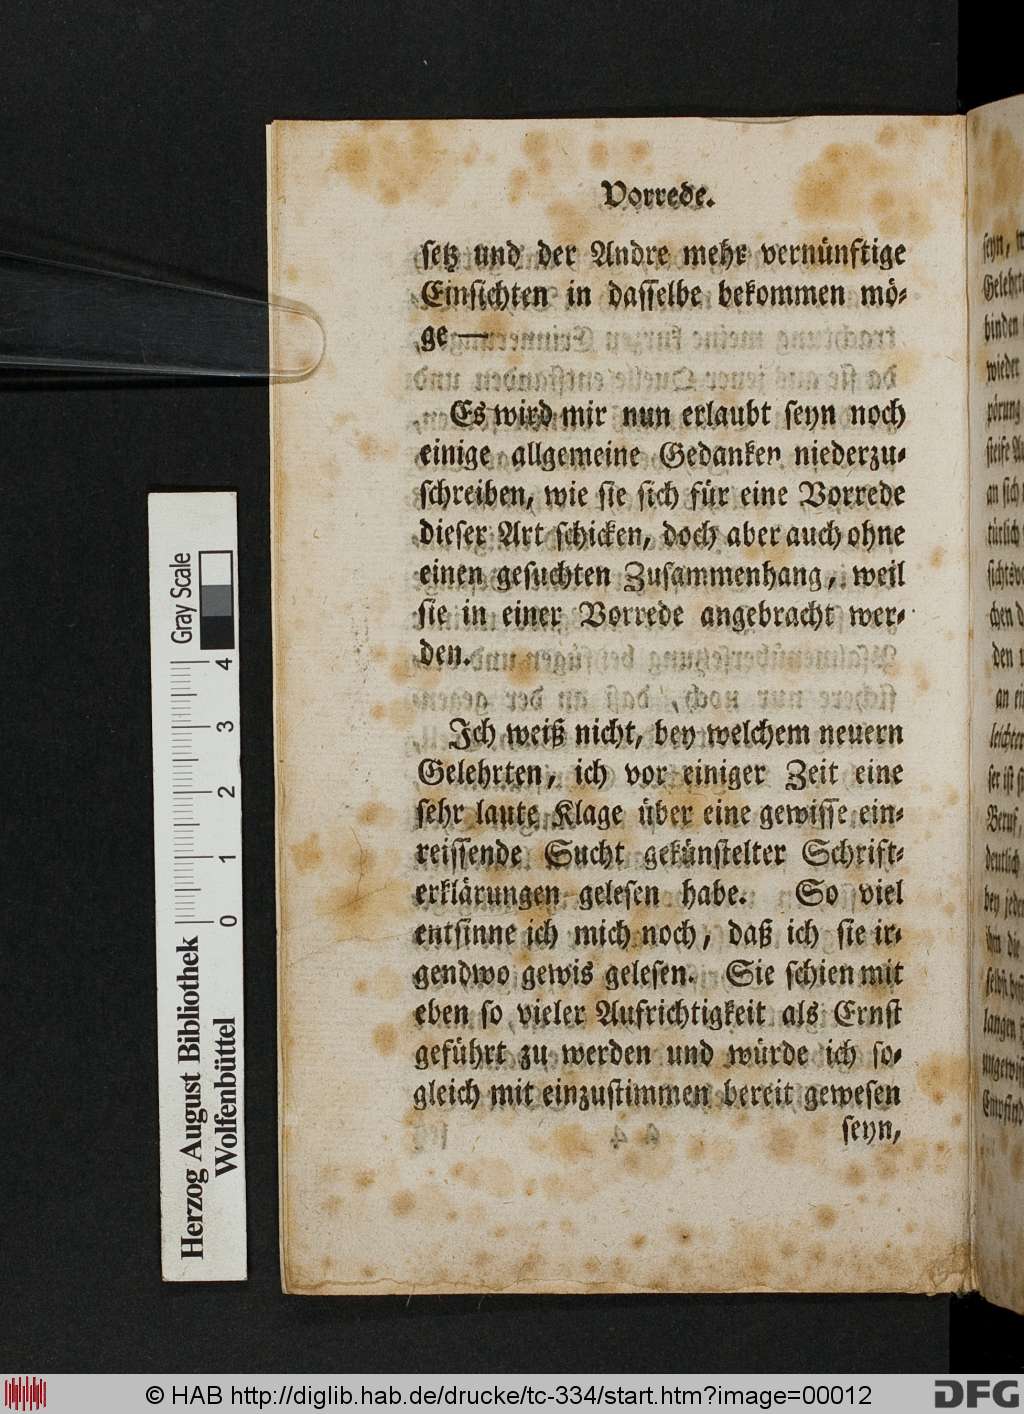 Vorrede.
setz und der Andre mehr vernünftige
Einsichten in dasselbe bekommen mö-
ge —
Es wird mir nun erlaubt seyn noch
einige allgemeine Gedanken niederzu-
schreiben, wie sie sich für eine Vorrede
dieser Art schicken, doch aber auch ohne
einen gesuchten Zusammenhang, weil
sie in einer Vorrede angebracht wer-
den.
Ich weiß nicht, bey welchem neuern
Gelehrten, ich vor einiger Zeit eine
sehr laute Klage über eine gewisse ein-
reissende Sucht gekünstelter Schrift-
erklärungen gelesen habe. So viel
entsinne ich mich noch, daß ich sie ir-
gendwo gewis gelesen. Sie schien mit
eben so vieler Aufrichtigkeit als Ernst
geführt zu werden und würde ich so-
gleich mit einzustimmen bereit gewesen
seyn,
seyn,
Gelehrte
binden
wieder
pörung
steife
an sich
türlich
chen
den
an
leichter
ser ist
Beruf,
deutlich
bey jeder
die
langen
Herzog August Bibliothek
Wolfenbüttel
0 1 2 3 4
Gray Scale
© HAB http://diglib.hab.de/drucke/tc-334/start.htm?image=00012
DFG